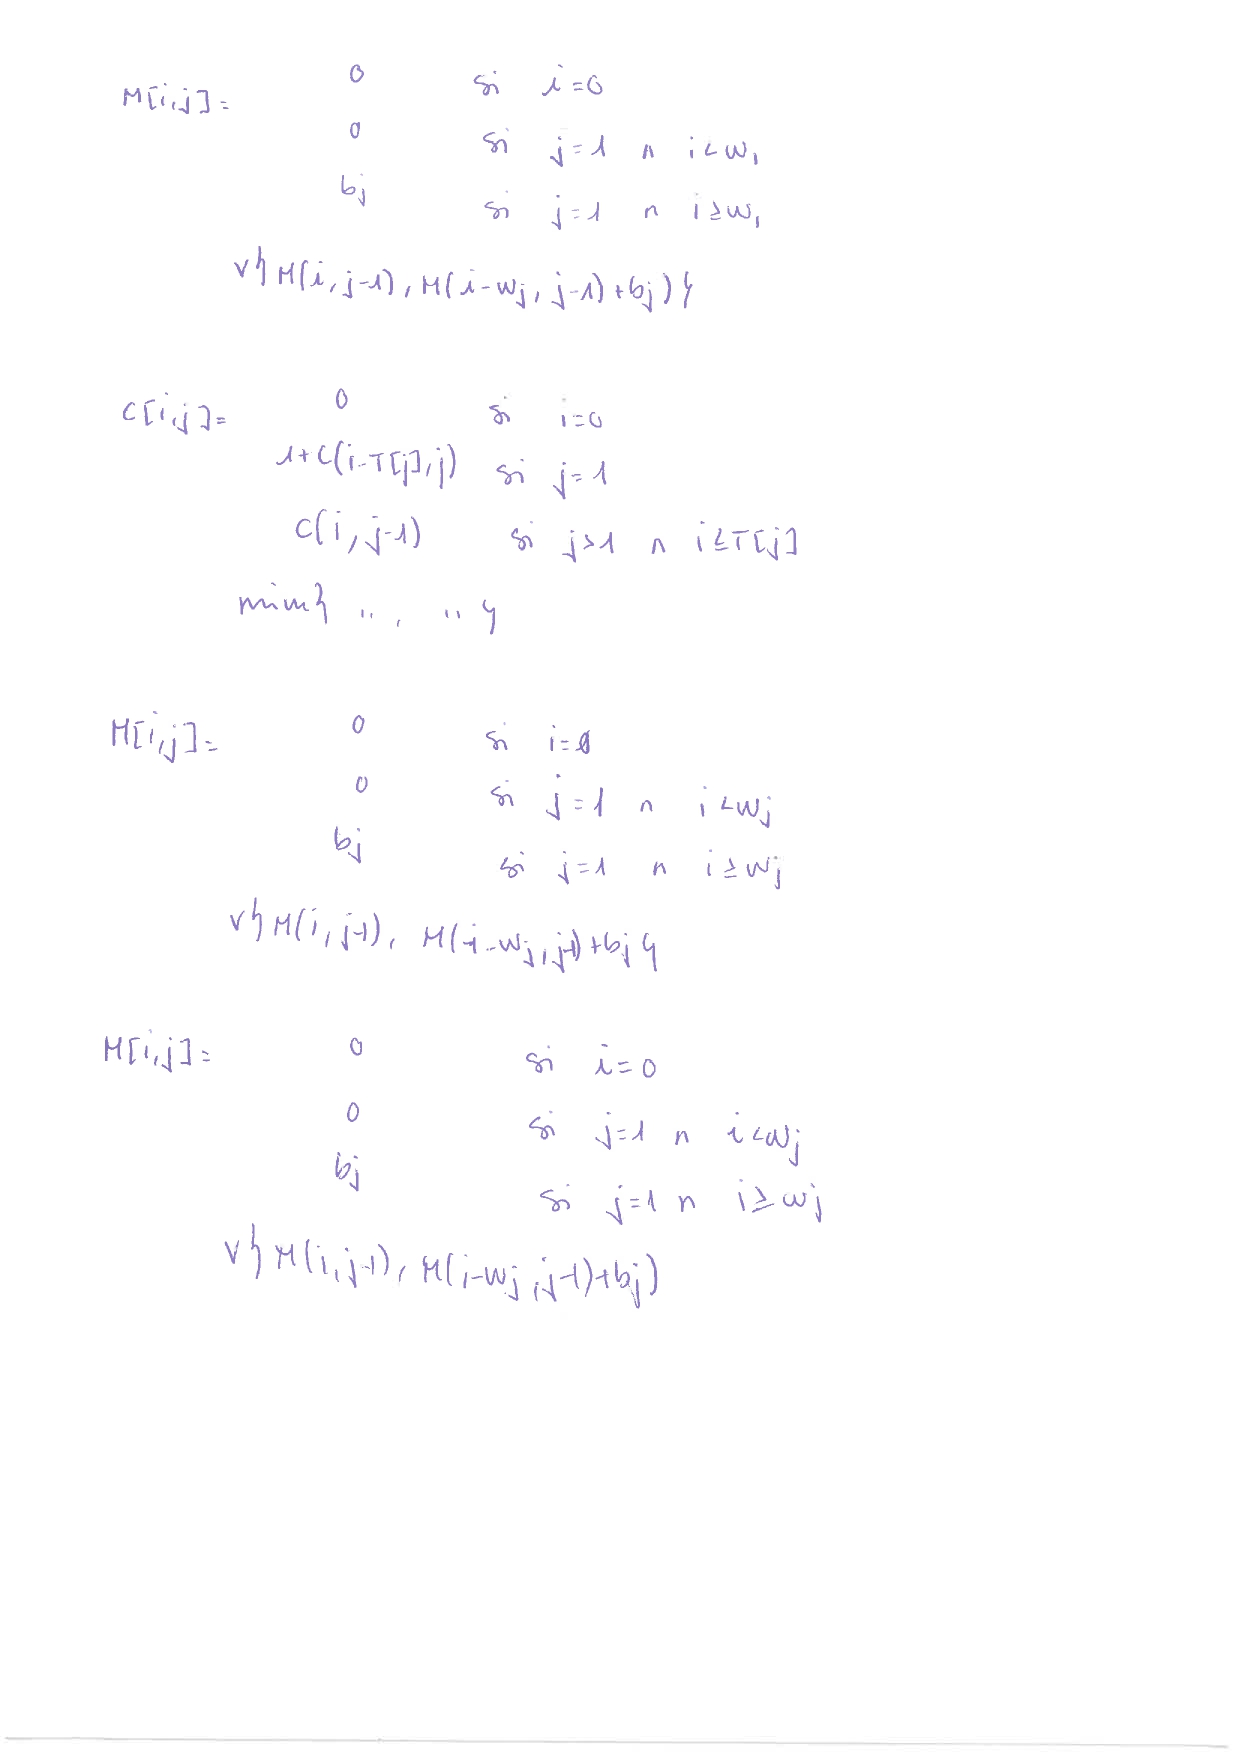 M[i,j]= 0 si i=0
0 si j=1 ∧ i<w₁
bj si j=1 ∧ i≥w₁
V{M(i,j-1), M(i-wj, j-1)+bj)}
C[i,j]= 0 si i=0
1+C(i-T[j],j) si j=1
C(i,j-1) si j>1 ∧ i≤T[j]
min{ .. , .. }
M[i,j]= 0 si i=0
0 si j=1 ∧ i<wj
bj si j=1 ∧ i≥wj
V{M(i,j-1), M(i-wj,j-1)+bj}
M[i,j]= 0 si i=0
0 si j=1 ∧ i<wj
bj si j=1 ∧ i≥wj
V{M(i,j-1), M(i-wj,j-1)+bj)